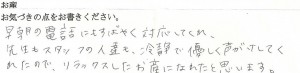 お産
お気づきの点をお書きください。
早朝の電話にもすばやく対応してくれ、
先生もスタッフの人達も、冷静で優しく声かけしてく
れたので、リラックスしたお産になれたと思います。